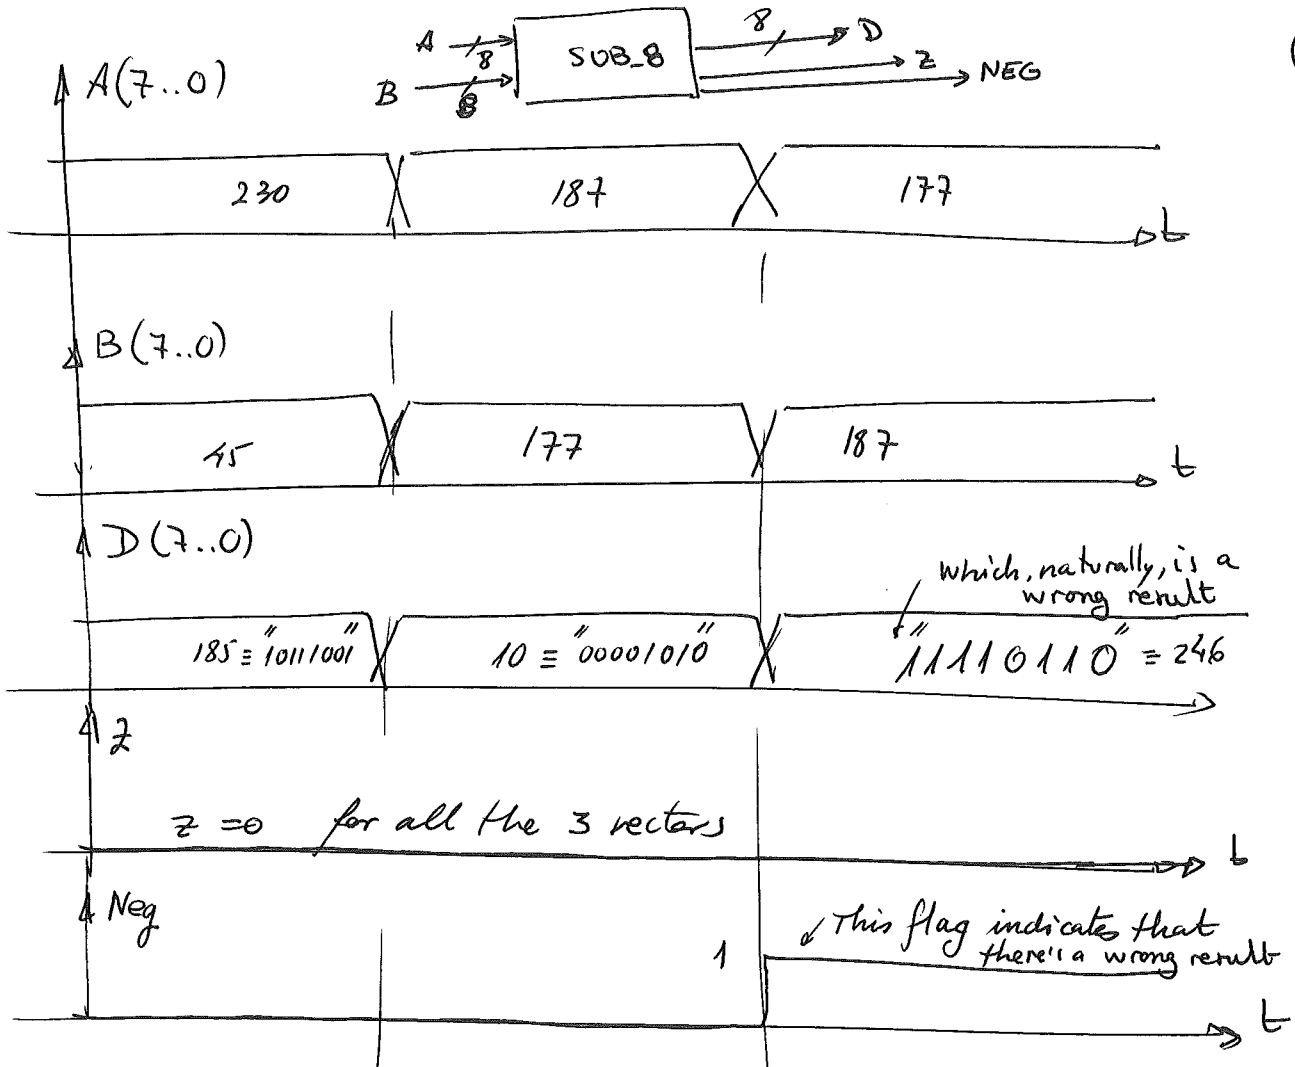 A 8 SUB_8 8 D
Z
B 8 NEG
(
A(7..0)
230 187 177
t
B(7..0)
45 177 187
t
D(7..0)
which, naturally, is a
wrong result
185 ≡ "10111001" 10 ≡ "00001010" "11110110" ≡ 246
Z
z = 0 for all the 3 vectors
t
Neg
1 This flag indicates that
there's a wrong result
t